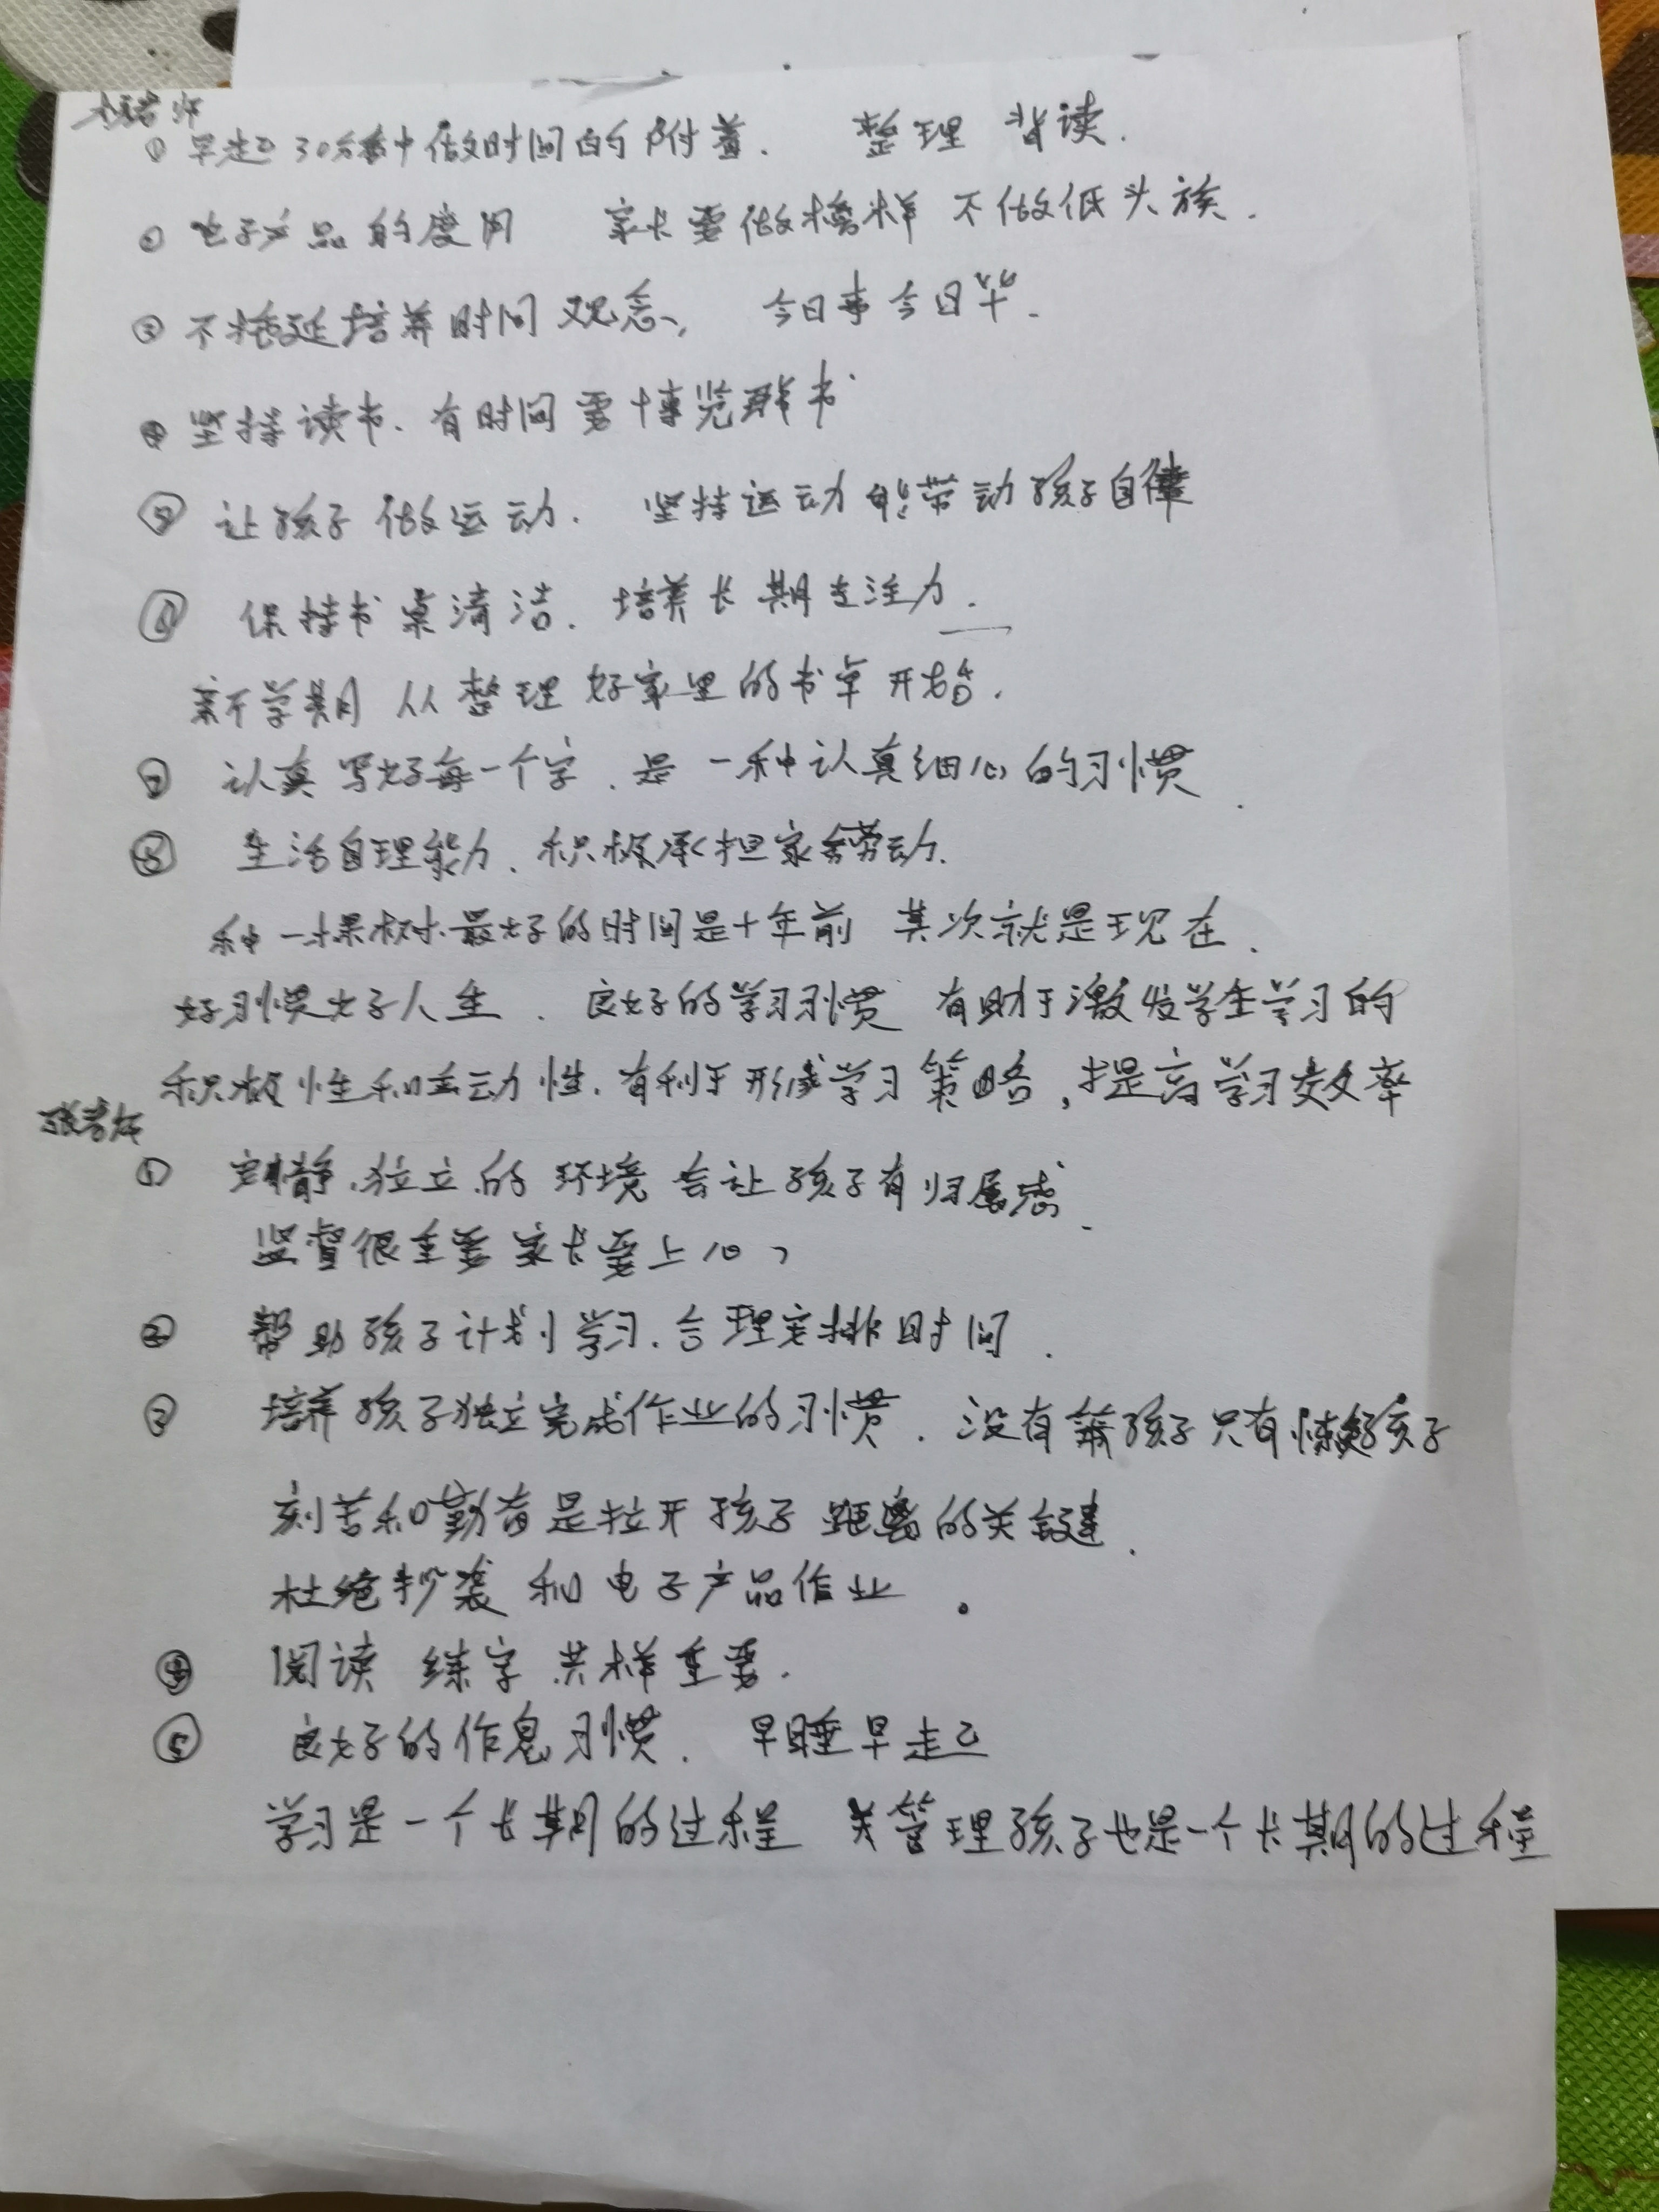 老师
① 早起30分钟做时间的 整理 背读.
② 电子产品的度 家长要做榜样 不做低头族.
③ 不拖延培养时间观念, 今日事今日毕.
④ 坚持读书. 有时间要博览群书
⑤ 让孩子做运动. 坚持运动能带动孩子自律
⑥ 保持书桌清洁. 培养长期专注力.
新学期 从整理好家里的书桌开始.
⑦ 认真写好每一个字. 是一种认真细心的习惯.
⑧ 生活自理能力. 积极承担家务劳动.
种一棵树.最好的时间是十年前 其次就是现在.
好习惯好人生. 良好的学习习惯 有助于激发学生学习的
积极性和主动性. 有利于形成学习策略,提高学习效率
张老师
① 安静.独立.的环境会让孩子有归属感.
监督很重要家长要上心
② 帮助孩子计划学习.合理安排时间.
③ 培养孩子独立完成作业的习惯. 没有笨孩子只有懒孩子
刻苦和勤奋是拉开孩子距离的关键.
杜绝抄袭和电子产品作业。
④ 阅读 练字 共样重要.
⑤ 良好的作息习惯. 早睡早起
学习是一个长期的过程 管理孩子也是一个长期的过程